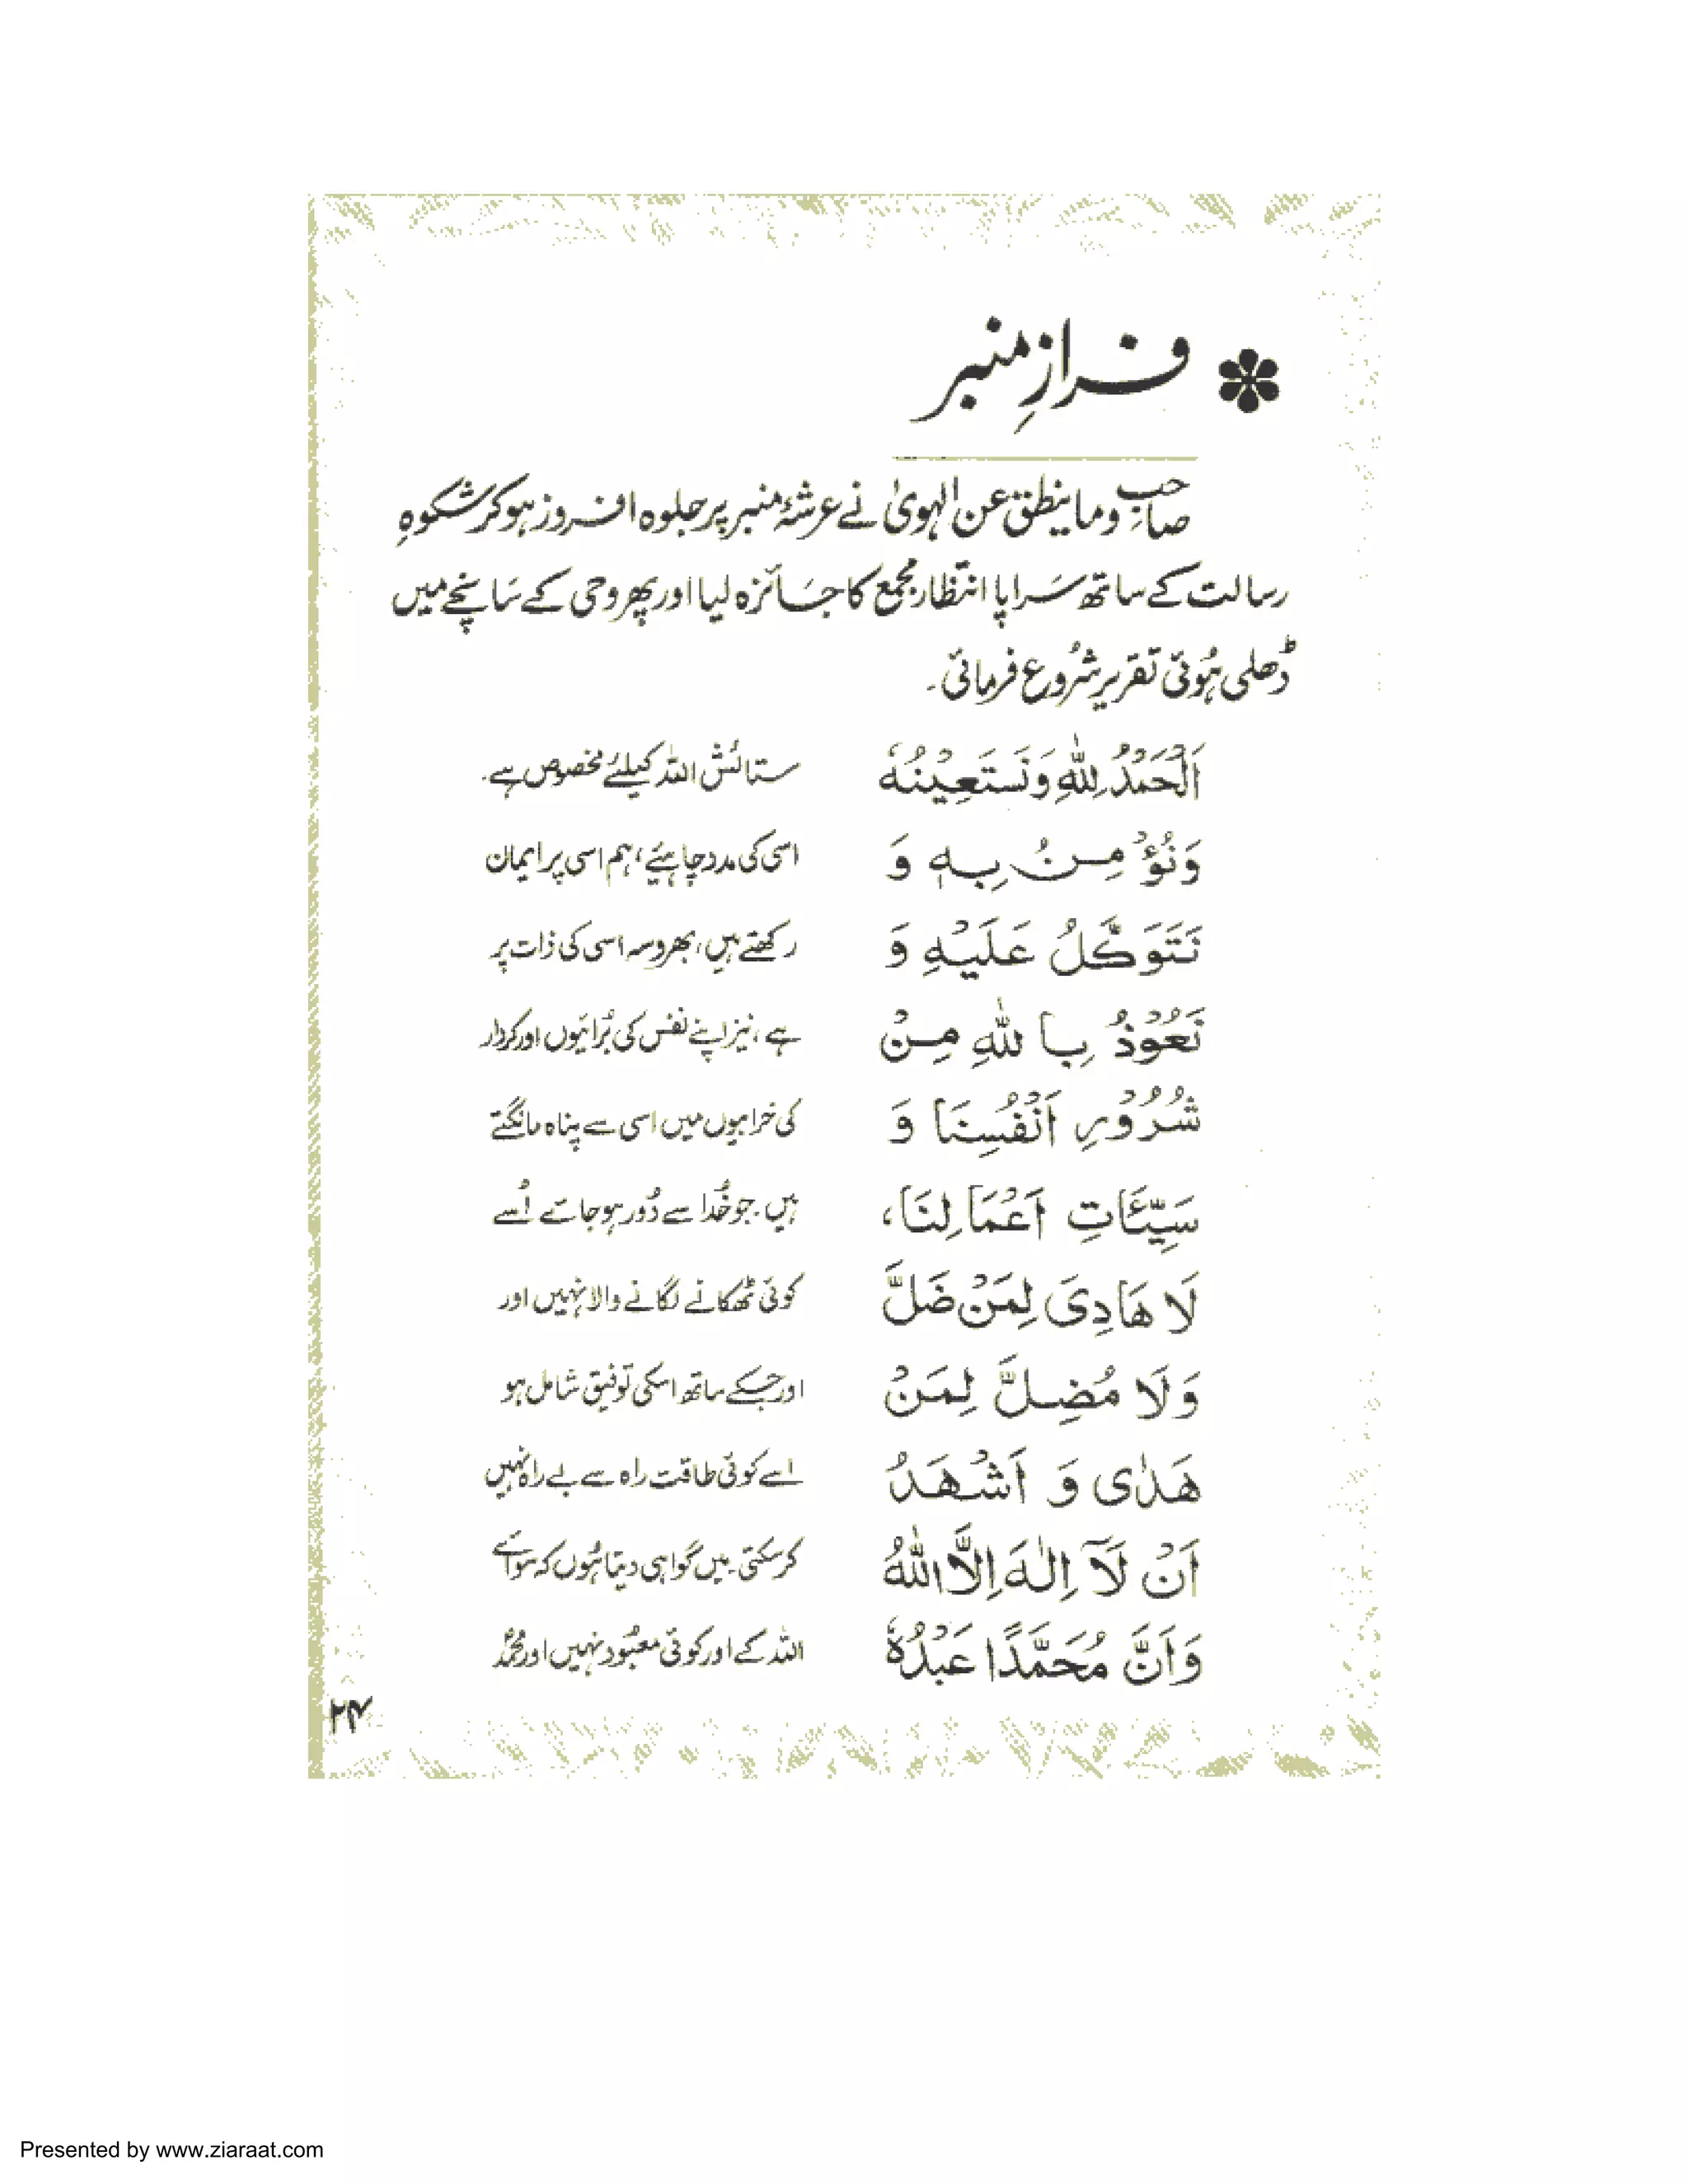 فرازِ منبر
صاحبِ وما ینطق عن الہویٰ نے عرشۂ منبر پر جلوہ افروز ہوکر شکوہِ
رسالت کے ساتھ سراپا انتظار مجمع کا جائزہ لیا اور پھر وحی کے سانچے میں
ڈھلی ہُوئی تقریر شُروع فرمائی۔
اَلْحَمْدُ لِلّٰهِ وَنَسْتَعِيْنُهٗ
وَنُؤْمِنُ بِهٖ وَ
نَتَوَكَّلُ عَلَيْهِ وَ
نَعُوْذُ بِا للّٰهِ مِنْ
شُرُوْرِ اَنْفُسِنَا وَ
سَيِّئَاتِ اَعْمَا لِنَا،
لَا هَادِىَ لِمَنْ ضَلَّ
وَلَا مُضِلَّ لِمَنْ
هَدٰى وَ اَشْهَدُ
اَنْ لَآ اِلٰهَ اِلَّا اللّٰهُ
وَاَنَّ مُحَمَّدًا عَبْدُهٗ
ستائش اللہ کیلئے مخصوص ہے۔
اسی کی مدد چاہیئے، ہم اسی پر ایمان
رکھتے ہیں، بھروسہ اسی کی ذات پر
ہے، نیز اپنے نفس کی بُرائیوں اور کردار
کی خرابیوں میں اسی سے پناہ مانگتے
ہیں۔ جو خُدا سے دُور ہو جائے اُسے
کوئی ٹھکانے لگانے والا نہیں اور
اور جسکے ساتھ اسکی توفیق شامل ہو
اسے کوئی طاقت راہ سے بے راہ نہیں
کرسکتی۔ میں گواہی دیتا ہُوں کہ سوائے
اللہ کے اور کوئی معبُود نہیں اور محمدؐ
۲۴
Presented by www.ziaraat.com